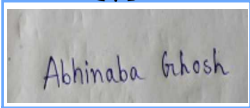 Abhinaba Ghosh